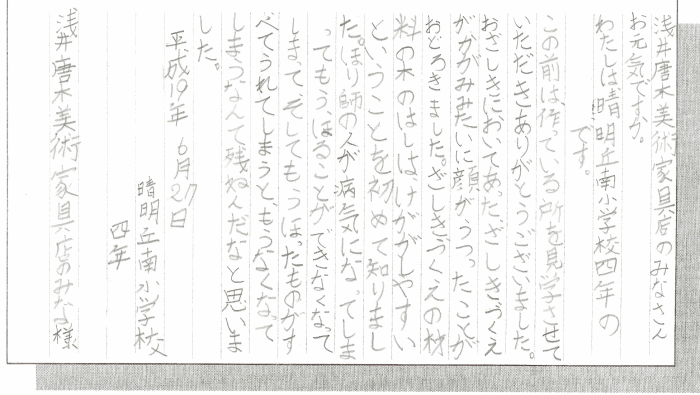 浅井唐木美術家具店のみなさん
お元気ですか。
わたしは晴明丘南小学校四年の
です。
この前は、作っている所を見学させて
いただきありがとうございました。
おざしきにおいてあったざしきづくえ
がかがみみたいに顔がうつったことが
おどろきました。ざしきづくえの材
料の木のはしは、けががしやすい
ということを初めて知りまし
た。ほり師の人が病気になってしま
ってもう、ほることができなくなって
しまってそしてもうほったものがす
べてうれてしまうと、もうなくなって
しまうなんて残ねんだなと思いま
した。
平成19年 6月27日
晴明丘南小学校
四年
浅井唐木美術家具店のみなさ様